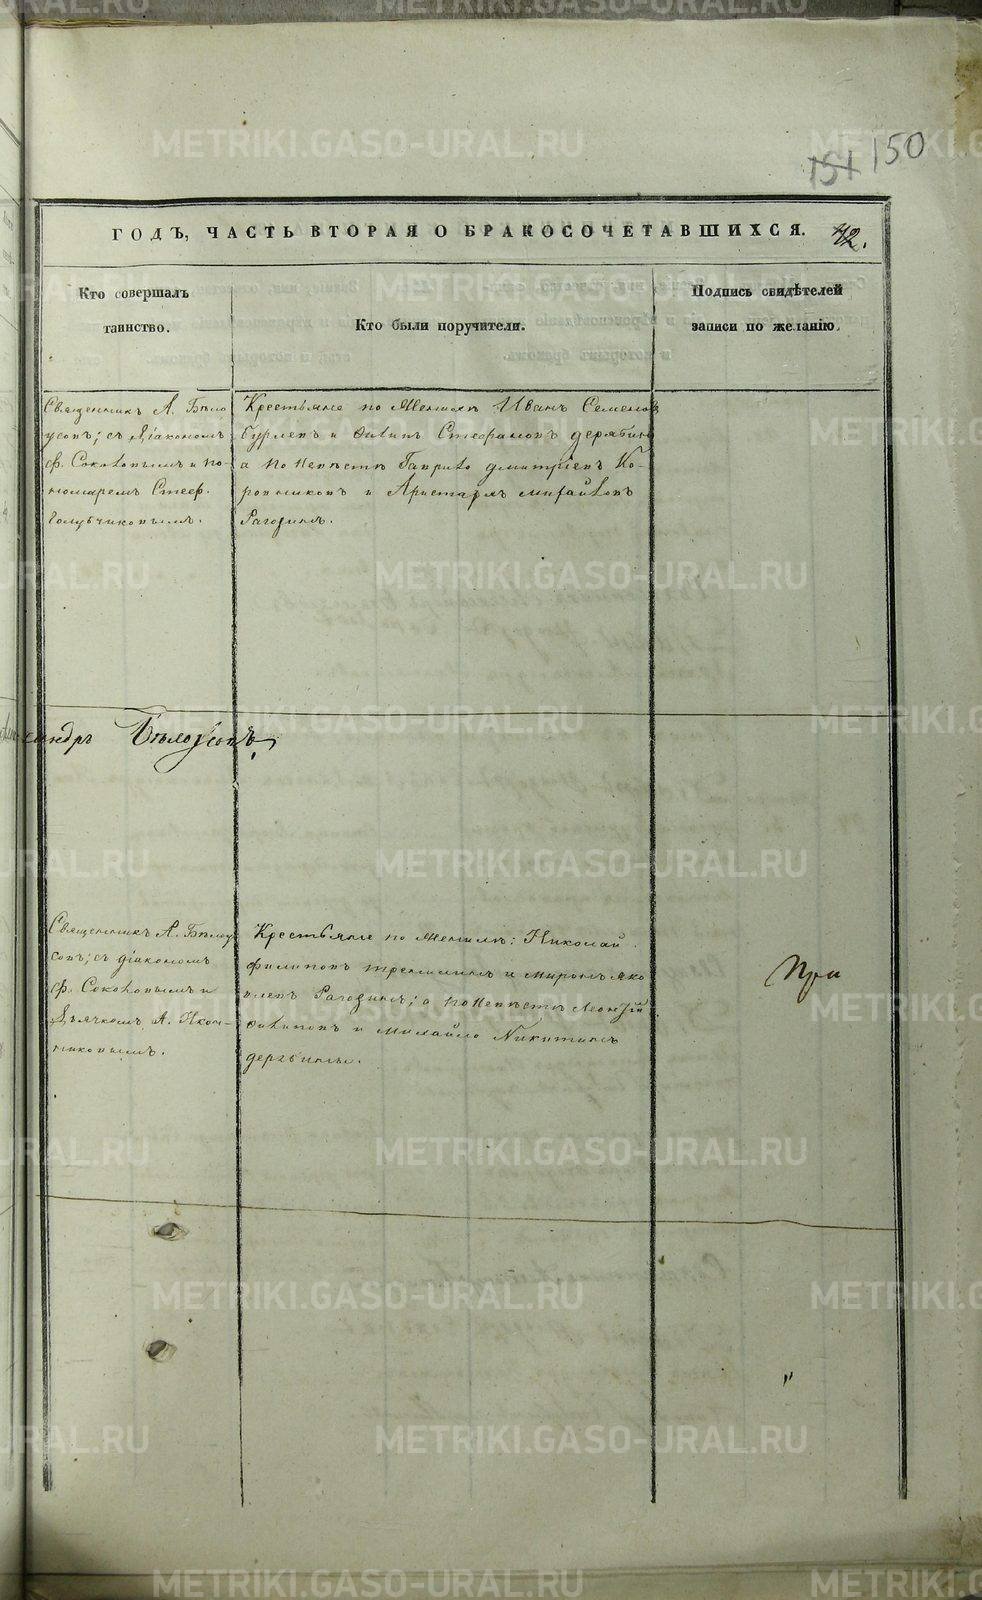 METRIKI.GASO-URAL.RU
151 150
ГОДЪ, ЧАСТЬ ВТОРАЯ О БРАКОСОЧЕТАВШИХСЯ. 42.
Кто совершалъ
таинство.
Кто были поручители.
Подпись свидѣтелей
записи по желанію.
Священникъ А. Бѣло
усовъ; съ Діакономъ
ф. Соколовымъ и по-
номаремъ Стеф.
Голубчиковымъ.
Крестьяне по Женихѣ Иванъ Семеновъ
Бурлевъ и Филипъ Стефановъ Дерябинъ
а по невѣстѣ Гаврило Дмитріевъ Ко-
ровниковъ и Аристархъ Михайловъ
Рагозинъ.
сандръ Бѣлоусовъ,
Священникъ А. Бѣлоу
совъ; съ діакономъ
ф. Соколовымъ и
Дьячкомъ А. Икон-
никовымъ.
Крестьяне по Женихѣ: Николай
Филиповъ и Миронъ Яко
влевъ Рагозинъ; а по невѣстѣ Леонтій
Филиповъ и Михайло Никитинъ
Дерябины.
При
"